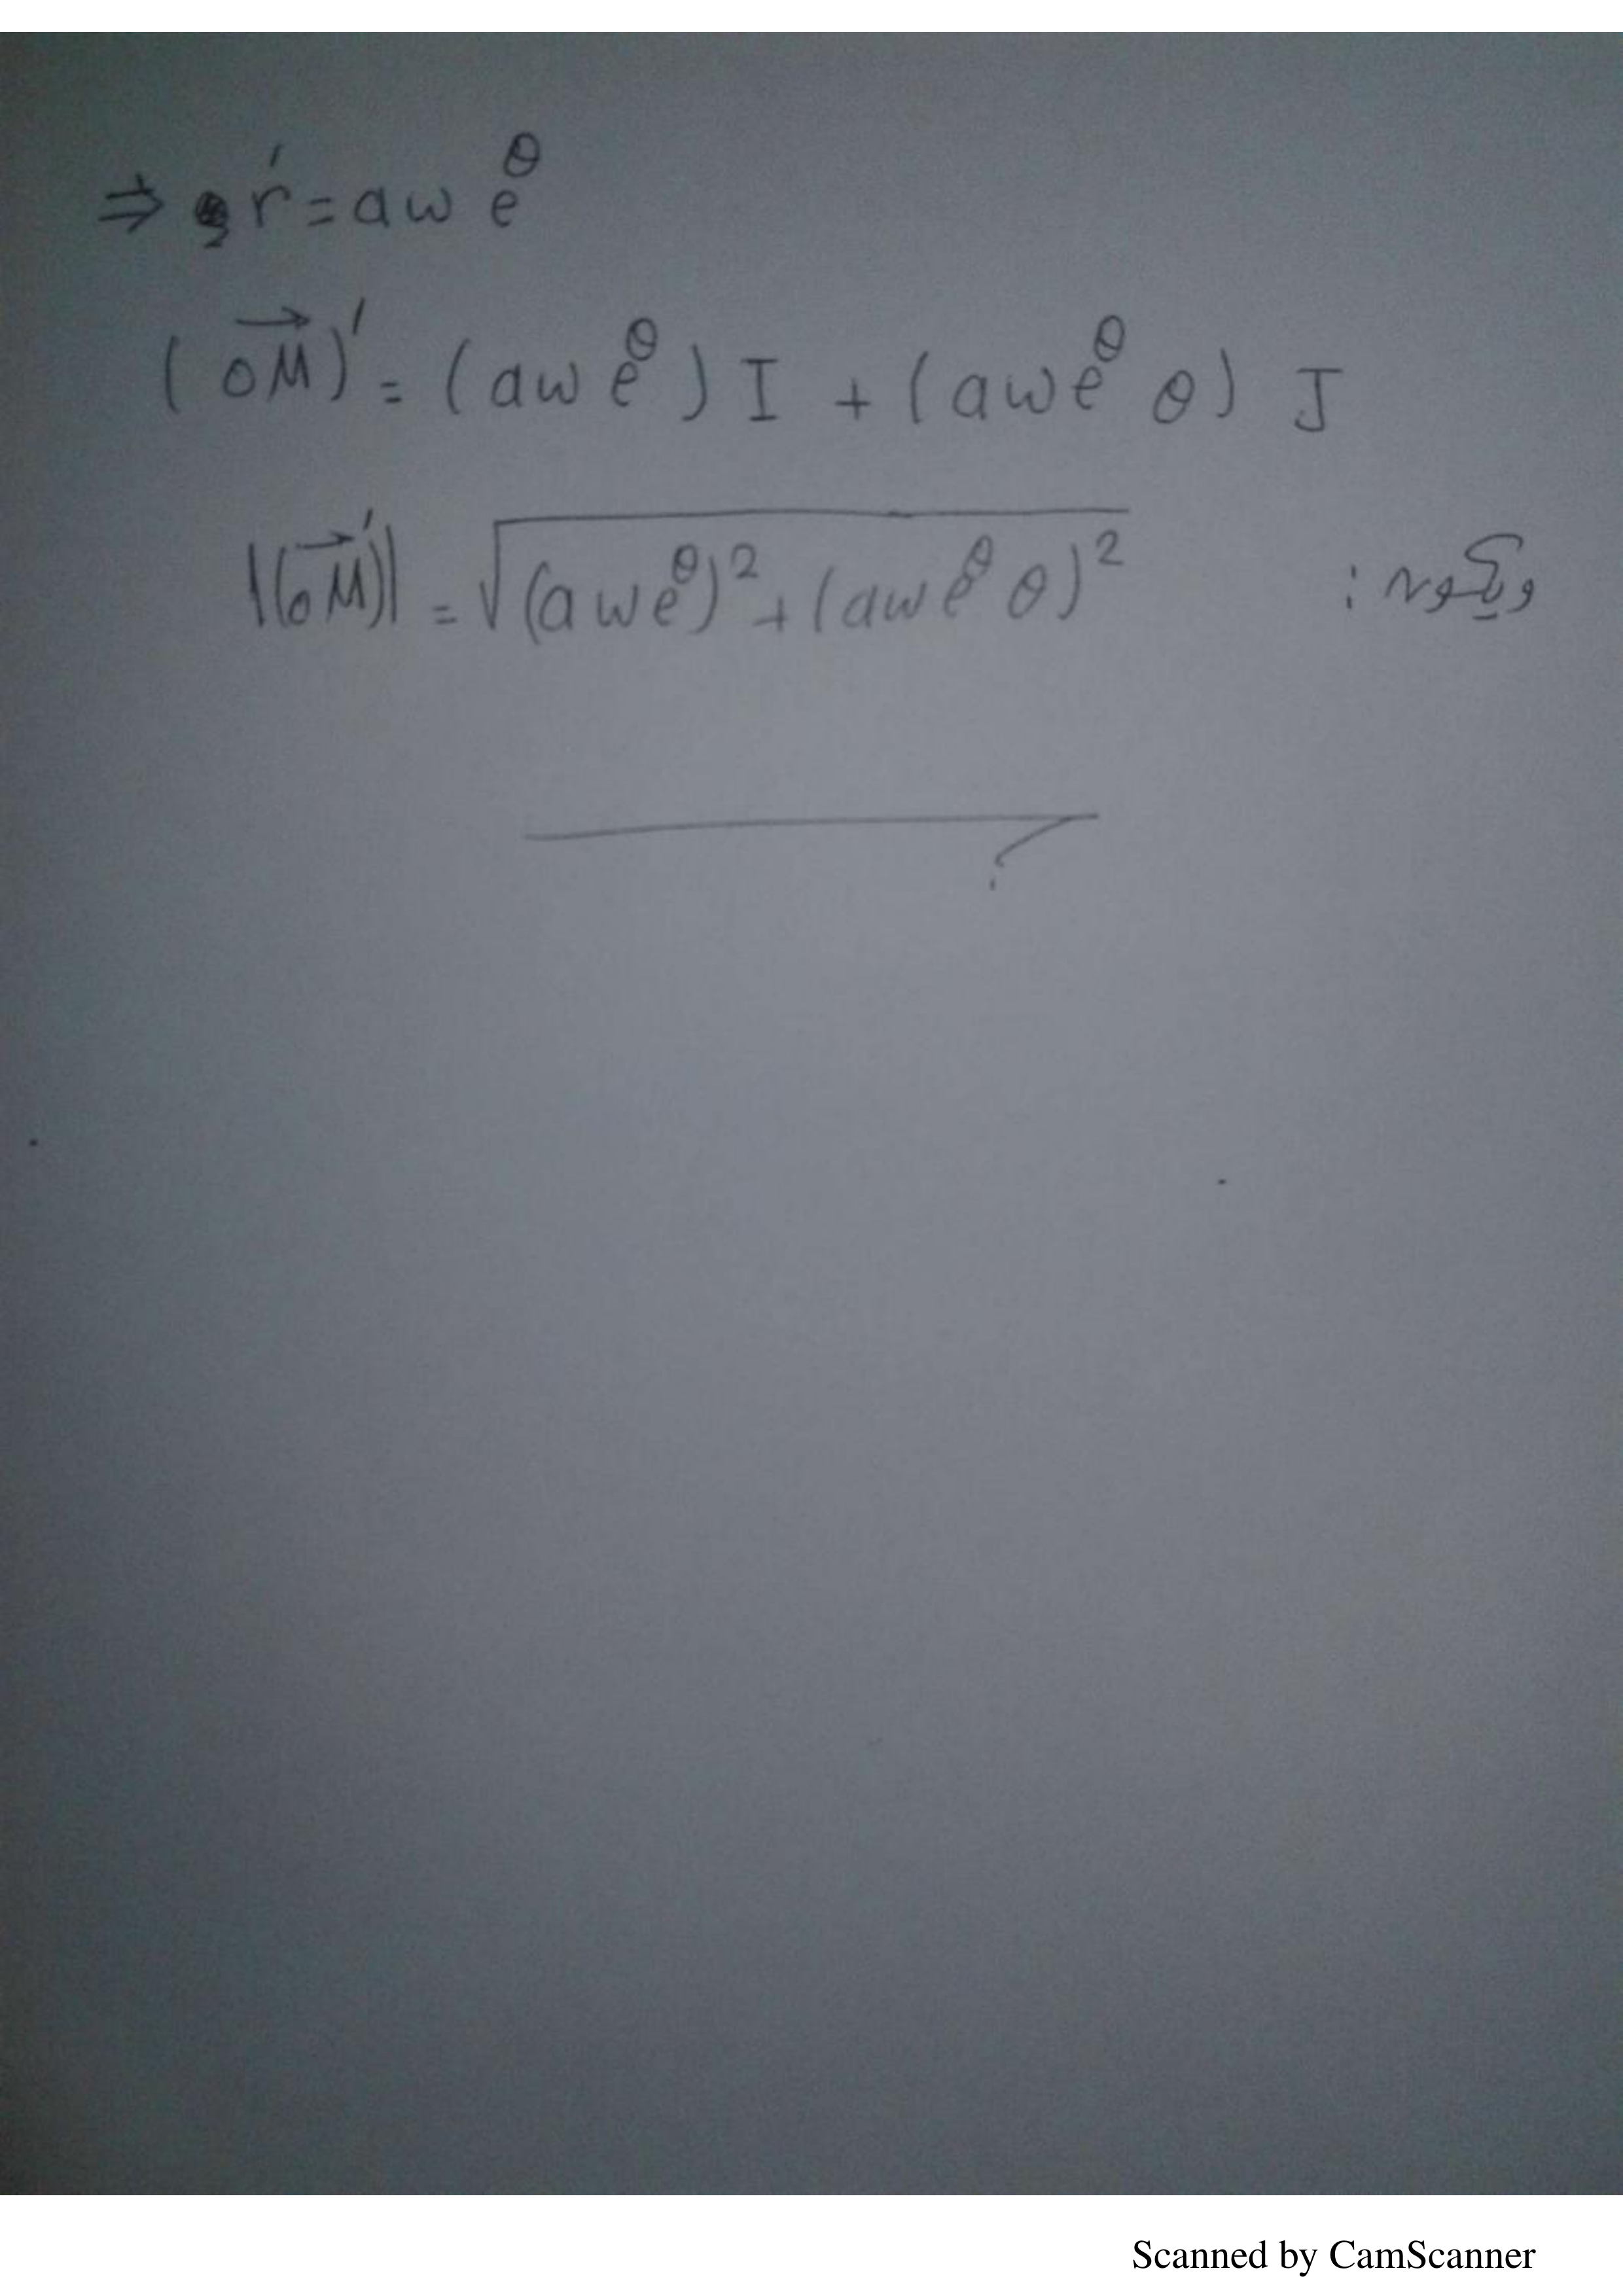 ⇒ r' = aω e^θ
(OM⃗)' = (aω e^θ) I + (aω e^θ θ) J
|(OM⃗)'| = √((aω e^θ)² + (aω e^θ θ)²) ويكون :
Scanned by CamScanner